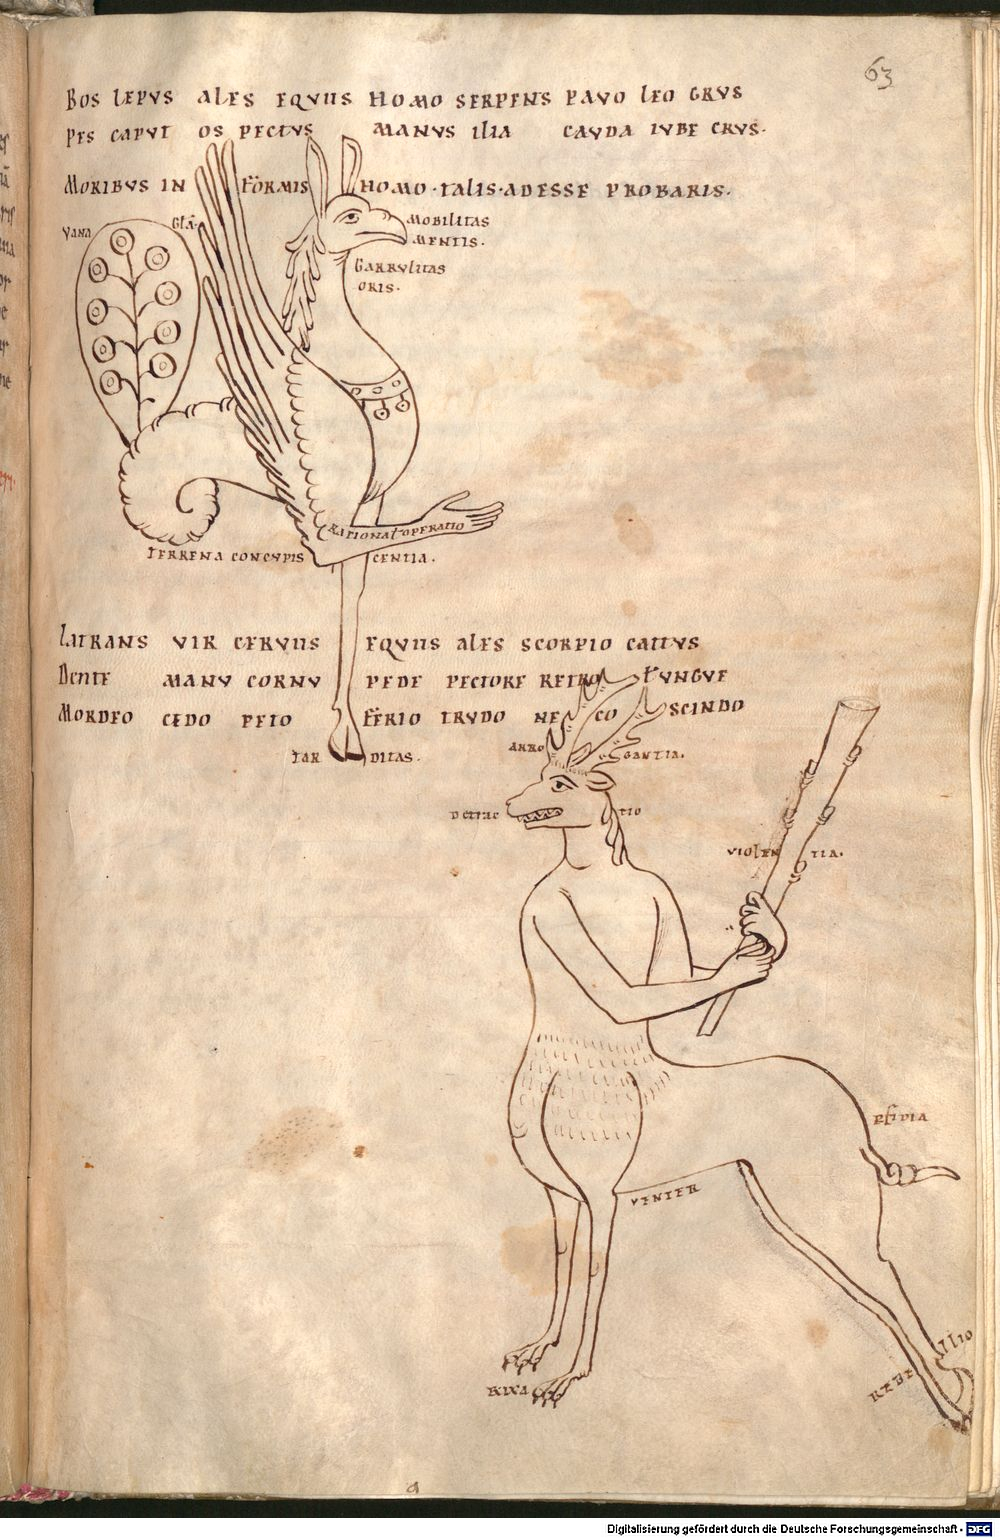 63
BOS LEPUS ALES EQUUS HOMO SERPENS PAVO LEO GRUS
PES CAPUT OS PECTUS MANUS ILIA CAUDA IUBE CRUS.
MORIBUS IN FORMIS HOMO · TALIS · ADESSE PROBARIS.
VANA GLA
MOBILITAS
MENTIS.
GARRULITAS
ORIS.
RATIONAL OPERATIO
TERRENA CONCUPIS CENTIA.
LATRANS VIR CERVUS EQUUS ALES SCORPIO CATTUS
DENTE MANU CORNU PEDE PECTORE RETRO ET UNGUE
MORDEO CEDO PETO FERIO TRUDO NE CO SCINDO
TAR DITAS.
ARRO GANTIA.
DETRAC TIO
VIOLEN TIA.
VENTER
RIXA
REBE LLIO
Digitalisierung gefördert durch die Deutsche Forschungsgemeinschaft - DFG